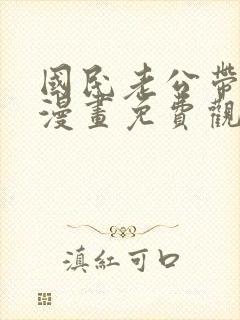 國民老公帶
漫畫免費觀
滇紅可口